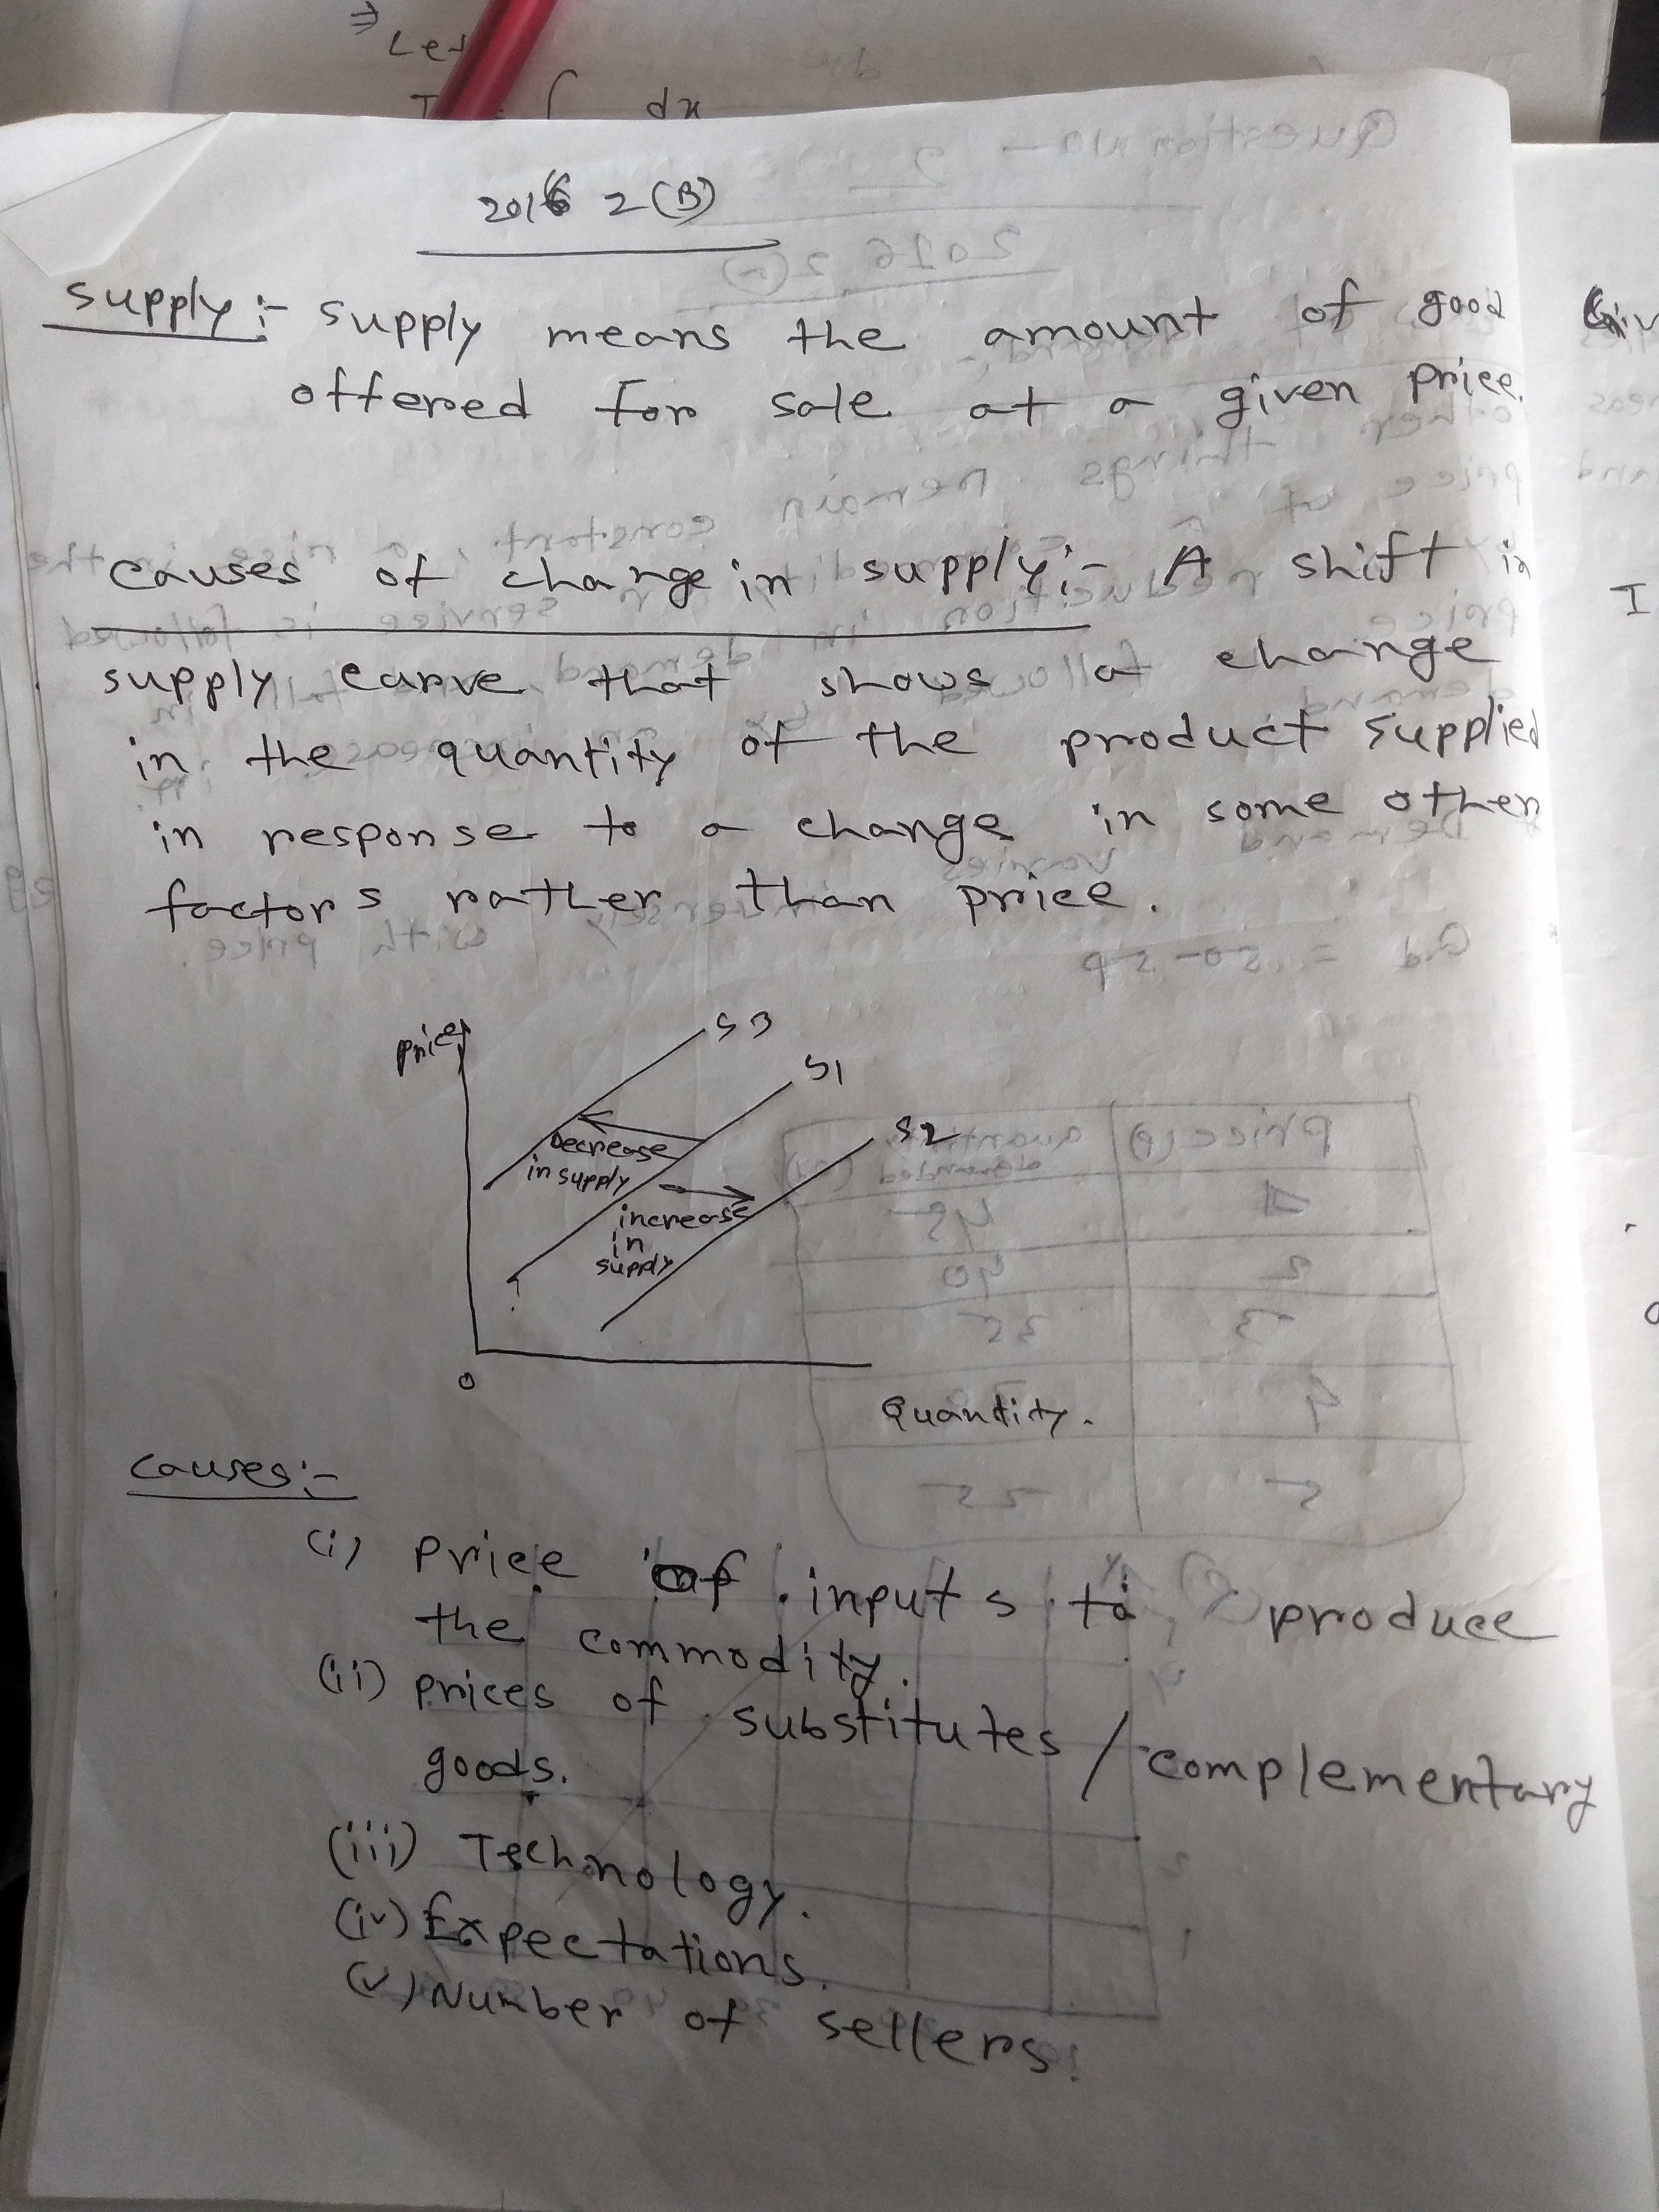 ⇒ Let
dx
2016 2(B)
supply :- supply means the amount of good
offered for sale at a given price.
causes of change in supply :- A shift in
supply carve that shows a change
in the quantity of the product supplied
in response to a change in some other
factors rather than price.
price
S3
S1
S2
Decrease
in supply
increase
in
supply
0
Quantity.
causes :-
(i) Price of inputs to produce
the commodity.
(ii) prices of substitutes / complementary
goods.
(iii) Technology.
(iv) Expectations.
(v) Number of sellers.